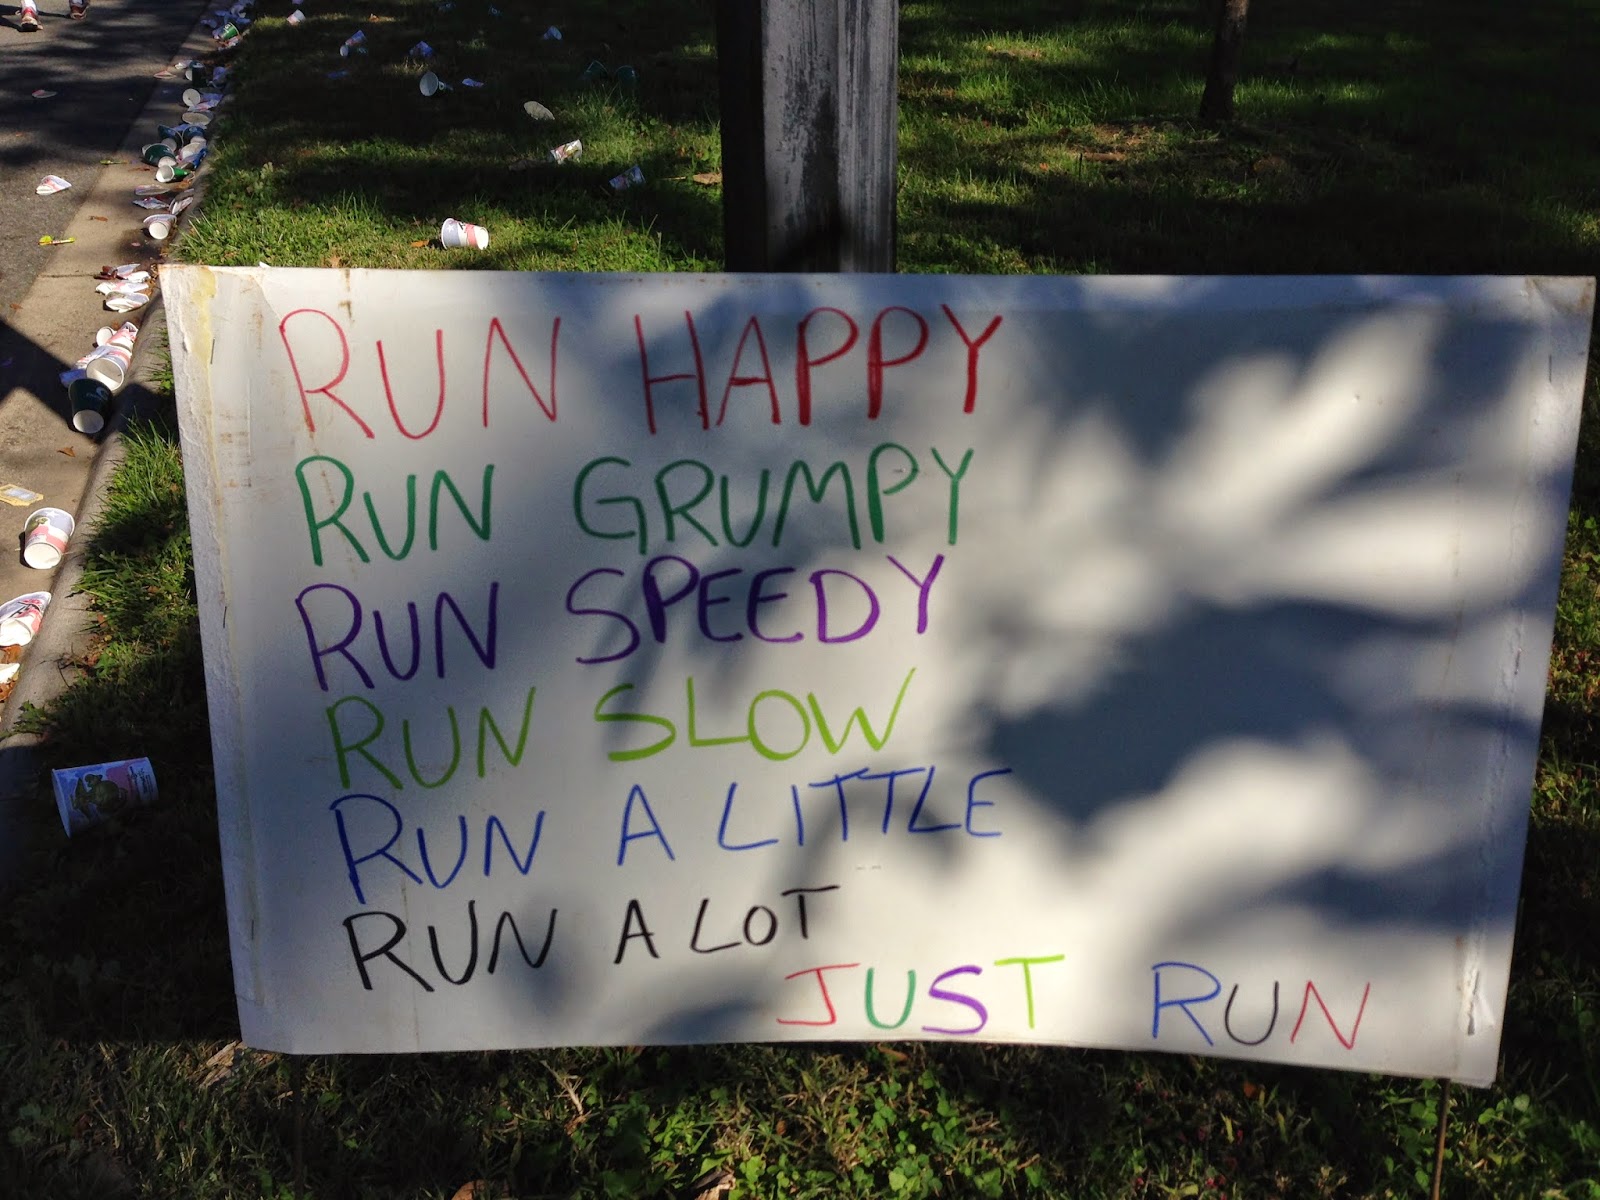 RUN HAPPY
RUN GRUMPY
RUN SPEEDY
RUN SLOW
RUN A LITTLE
RUN A LOT
JUST RUN